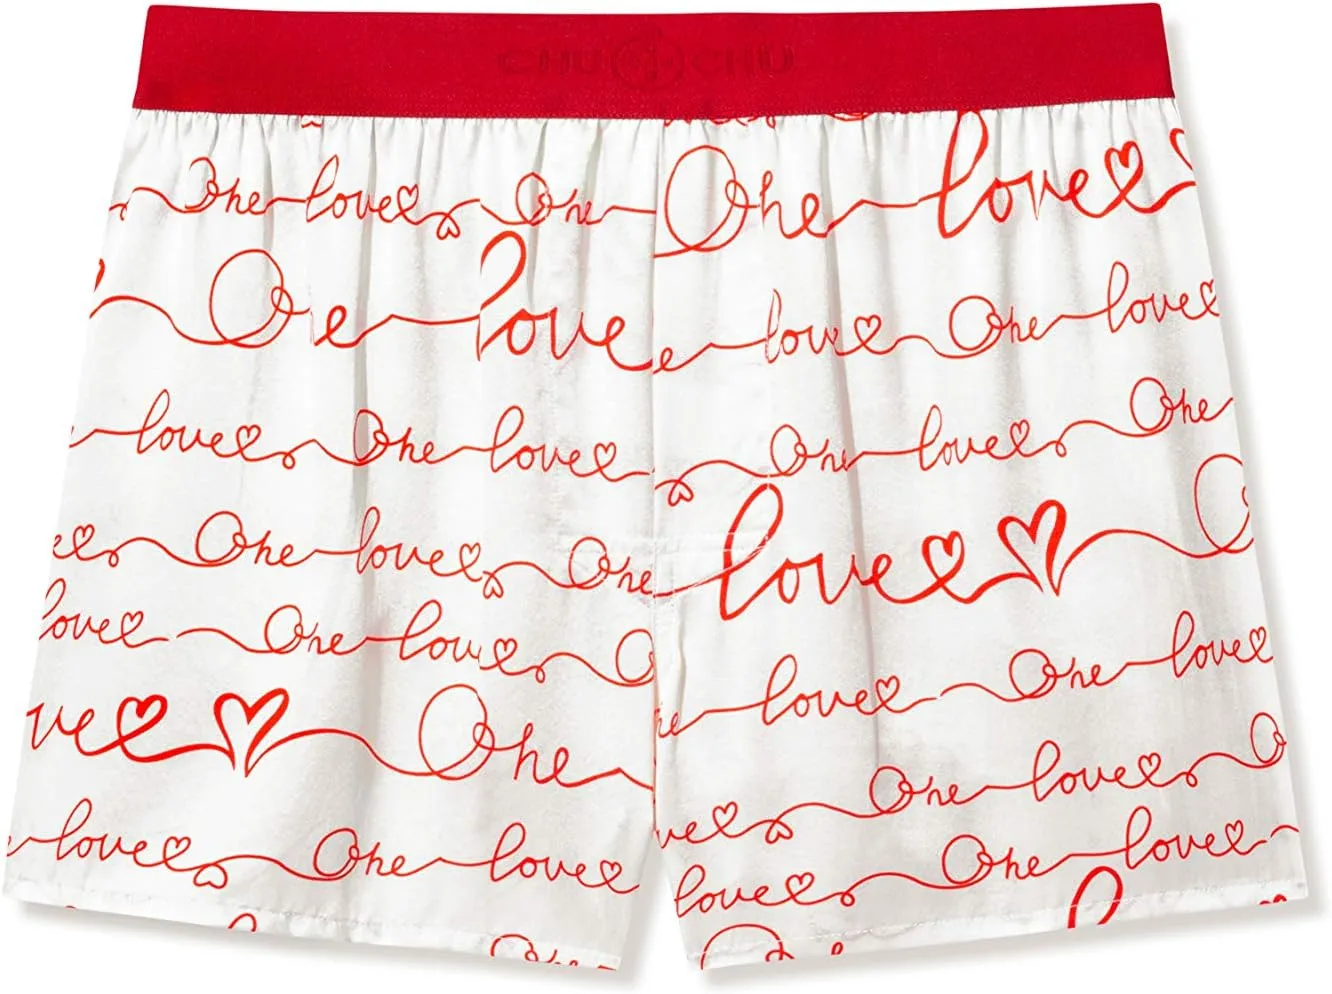 CHU CHU
One love One
One love
One love
love
love One love
love One love
One love
One love
One love One
love
love One love
One love
love One love
ve One
One love
love One love
love One love